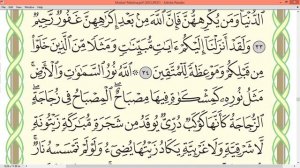 ٱلدُّنْيَا وَمَن يُكْرِههُّنَّ فَإِنَّ ٱللَّهَ مِنۢ بَعْدِ إِكْرَٰهِهِنَّ غَفُورٌ رَّحِيمٌ
٣٣ وَلَقَدْ أَنزَلْنَآ إِلَيْكُمْ ءَايَٰتٍ مُّبَيِّنَٰتٍ وَمَثَلًا مِّنَ ٱلَّذِينَ خَلَوْا۟
مِن قَبْلِكُمْ وَمَوْعِظَةً لِّلْمُتَّقِينَ ٣٤ ۞ ٱللَّهُ نُورُ ٱلسَّمَٰوَٰتِ وَٱلْأَرْضِ
مَثَلُ نُورِهِۦ كَمِشْكَوٰةٍ فِيهَا مِصْبَاحٌ ٱلْمِصْبَاحُ فِى زُجَاجَةٍ
ٱلزُّجَاجَةُ كَأَنَّهَا كَوْكَبٌ دُرِّىٌّ يُوقَدُ مِن شَجَرَةٍ مُّبَٰرَكَةٍ زَيْتُونَةٍ
لَّا شَرْقِيَّةٍ وَلَا غَرْبِيَّةٍ يَكَادُ زَيْتُهَا يُضِىٓءُ وَلَوْ لَمْ تَمْسَسْهُ نَارٌ